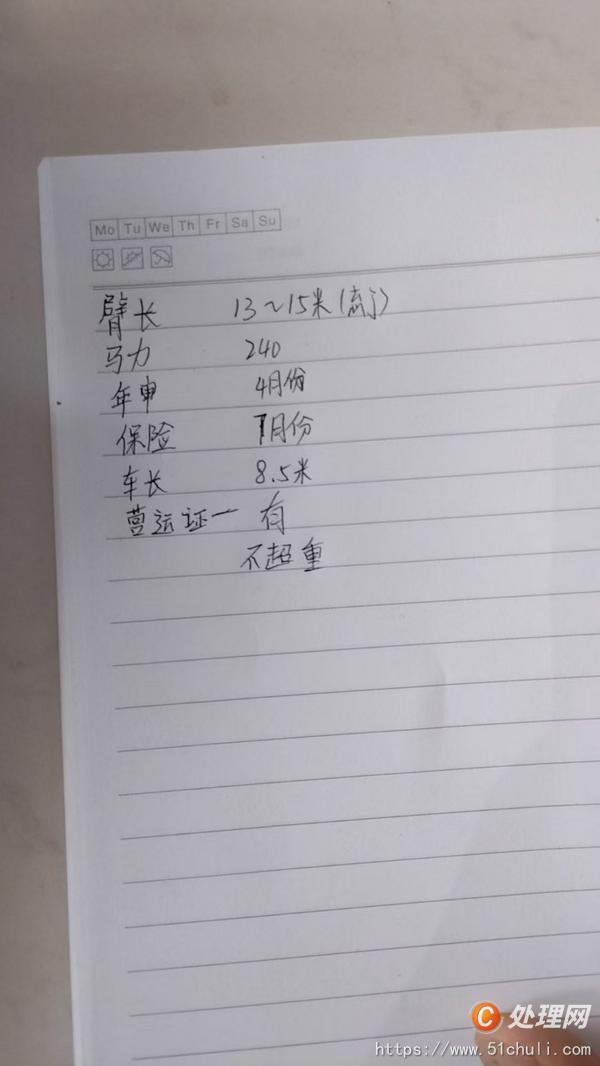 Mo Tu We Th Fr Sa Su
臂长 13~15米(
马力 240
年申 4月份
保险 1月份
车长 8.5米
营运证一 有
不超重
C 处理网
https://www.51chuli.com